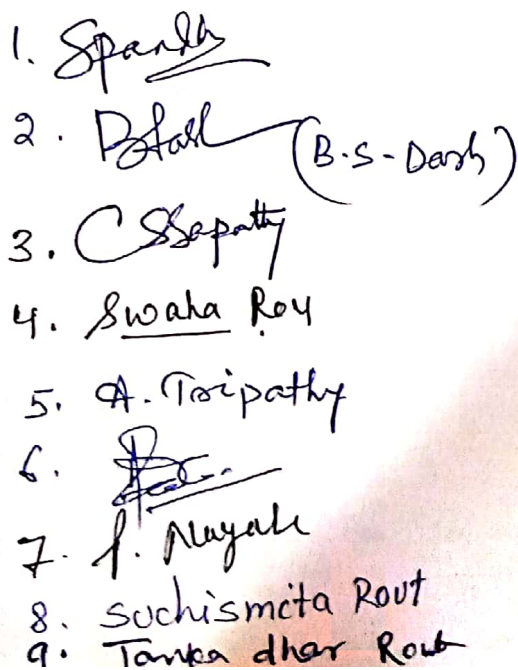 1. Spanda
2. BSDash (B.S-Dash)
3. CSSapathy
4. Swaha Roy
5. A. Tripathy
6.
7. P. Nayak
8. Suchismita Rout
9. Tanka dhar Rout